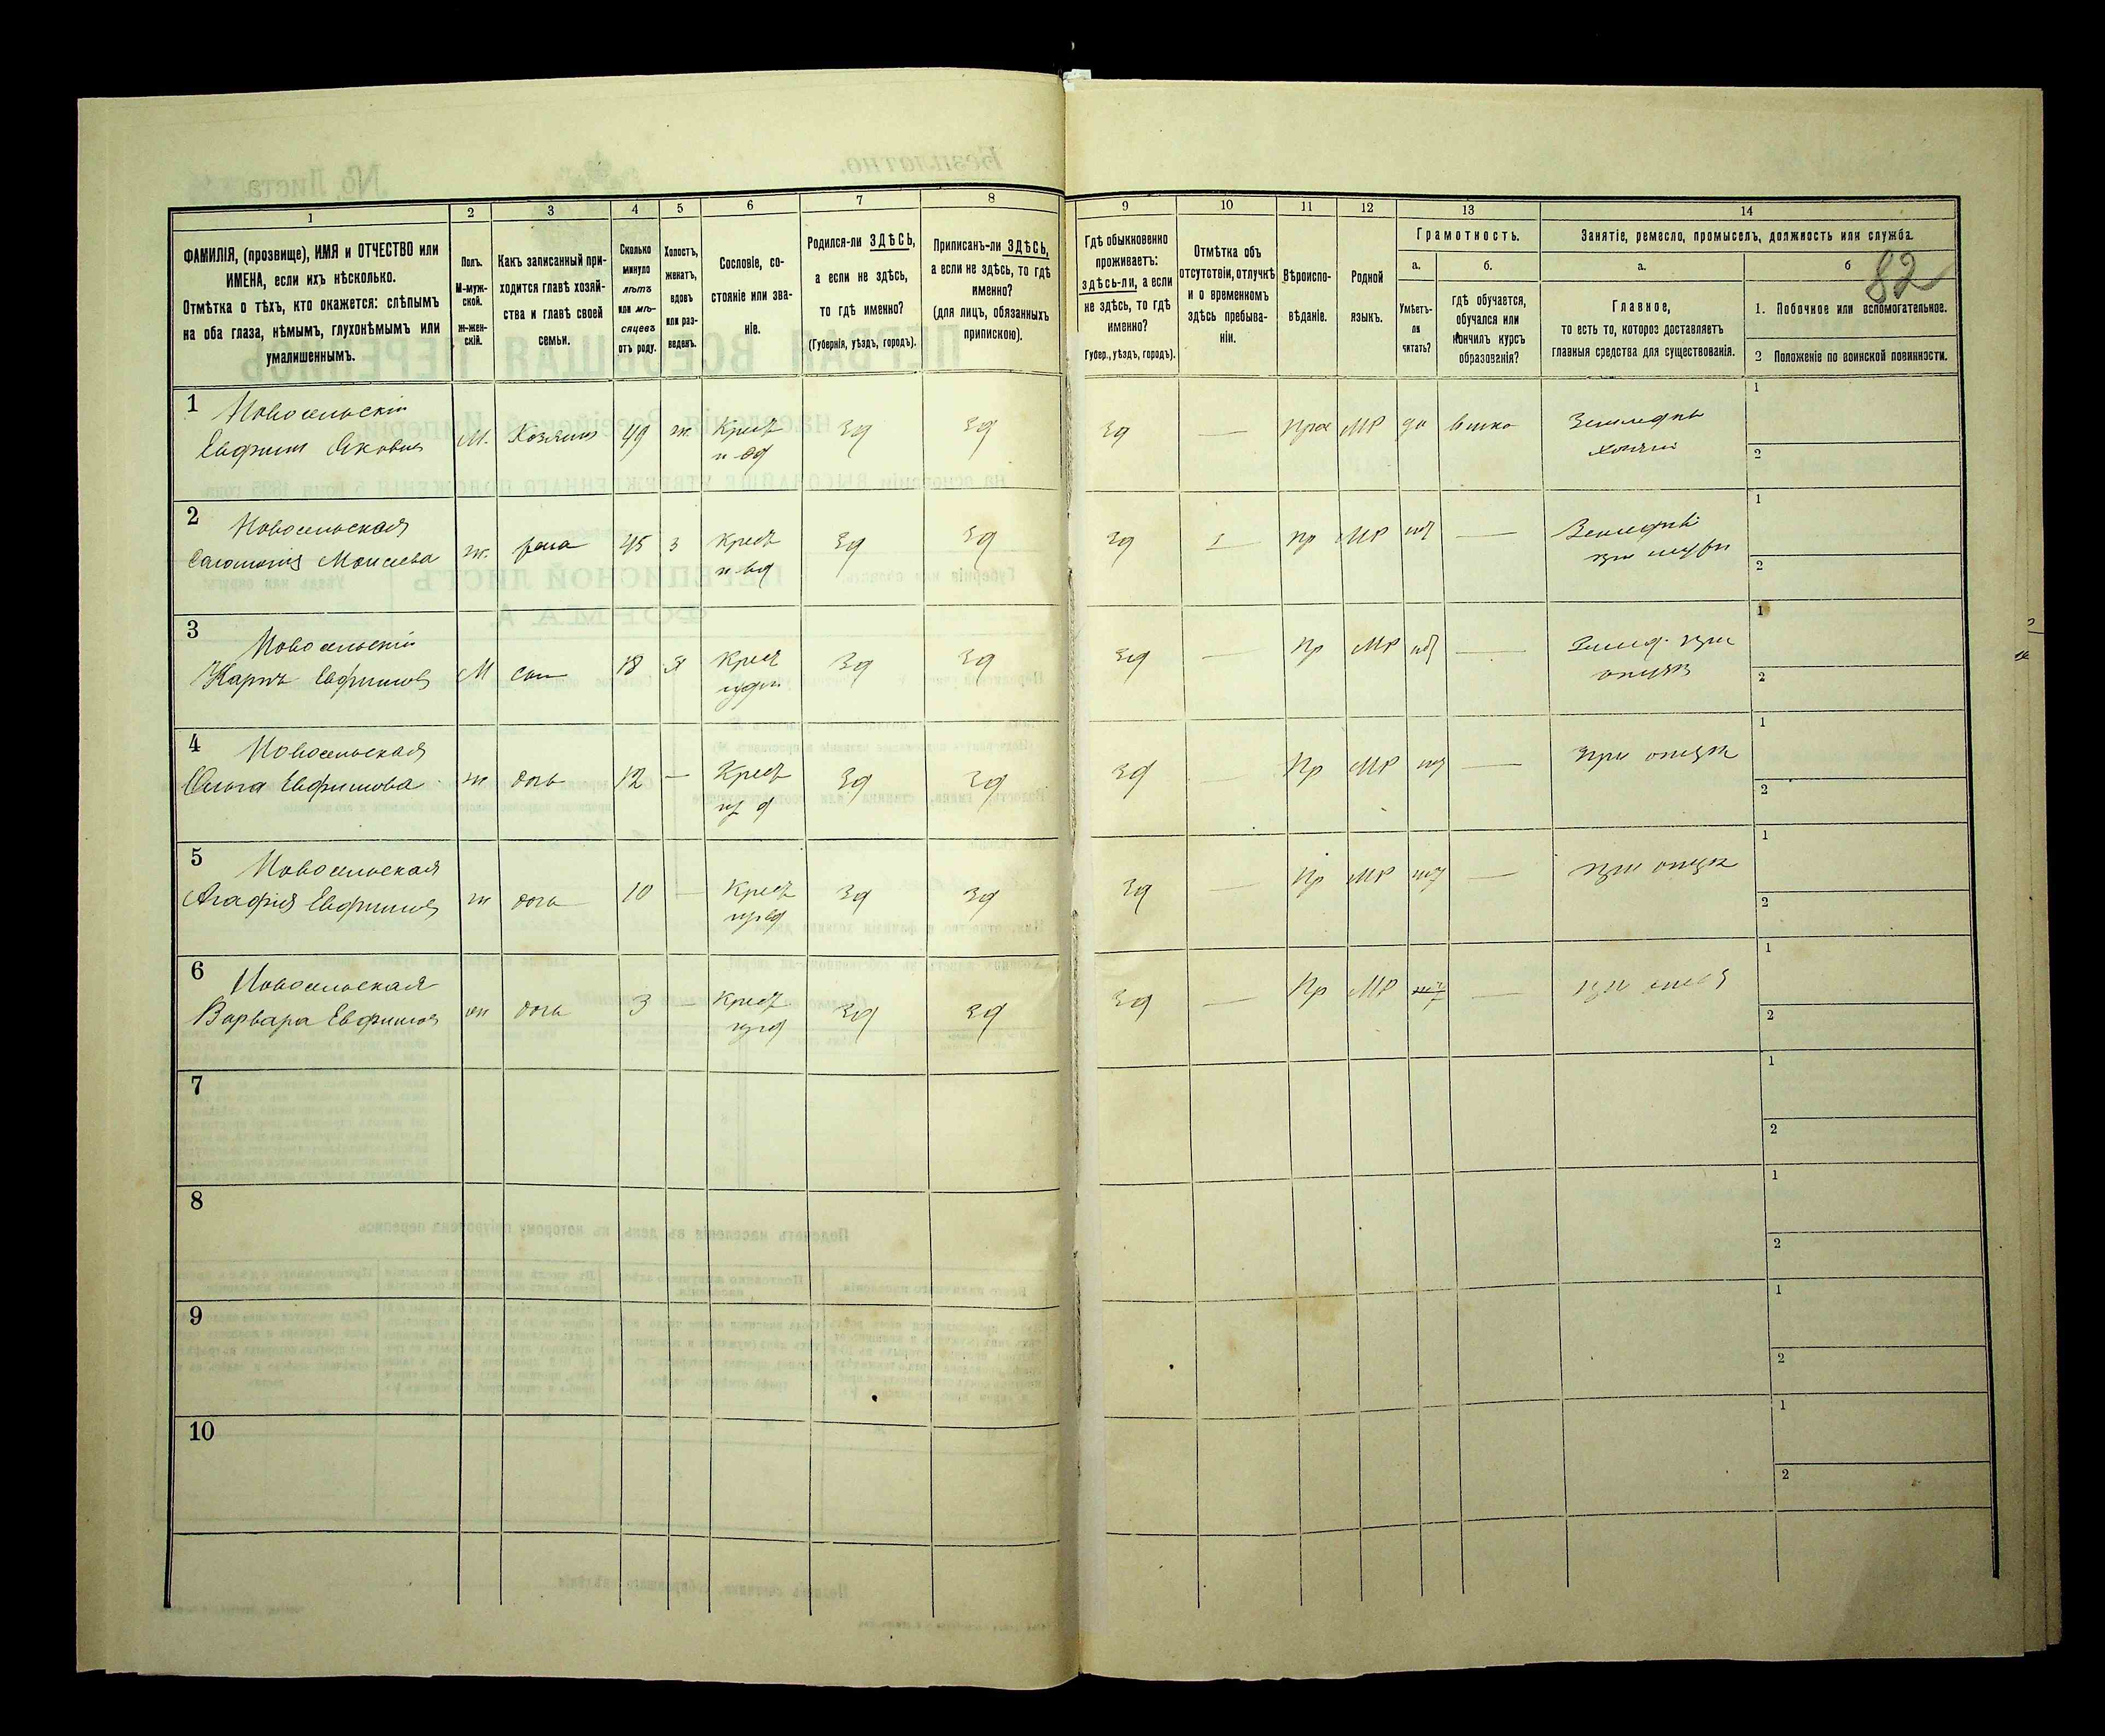 1
2
3
4
5
6
7
8
9
10
11
12
13
14
ФАМИЛІЯ, (прозвище), ИМЯ и ОТЧЕСТВО или
ИМЕНА, если ихъ нѣсколько.
Отмѣтка о тѣхъ, кто окажется: слѣпымъ
на оба глаза, нѣмымъ, глухонѣмымъ или
умалишеннымъ.
Полъ.
М-муж-
ской.
ж-жен-
скій.
Какъ записанный при-
ходится главѣ хозяй-
ства и главѣ своей
семьи.
Сколько
минуло
лѣтъ
или мѣ-
сяцевъ
отъ роду.
Холостъ,
женатъ,
вдовъ
или раз-
веденъ.
Сословіе, со-
стояніе или зва-
ніе.
Родился-ли ЗДѢСЬ,
а если не здѣсь,
то гдѣ именно?
(Губернія, уѣздъ, городъ).
Приписанъ-ли ЗДѢСЬ,
а если не здѣсь, то гдѣ
именно?
(для лицъ, обязанныхъ
припискою).
Гдѣ обыкновенно
проживаетъ:
здѣсь-ли, а если
не здѣсь, то гдѣ
именно?
Губер., уѣздъ, городъ).
Отмѣтка объ
отсутствіи, отлучкѣ
и о временномъ
здѣсь пребыва-
ніи.
Вѣроиспо-
вѣданіе.
Родной
языкъ.
Грамотность.
а.
б.
Умѣетъ-
ли
читать?
гдѣ обучается,
обучался или
кончилъ курсъ
образованія?
Занятіе, ремесло, промыселъ, должность или служба.
а.
б
82
Главное,
то есть то, которое доставляетъ
главныя средства для существованія.
1. Побочное или вспомогательное.
2 Положеніе по воинской повинности.
1
Новосельскій
Евфимъ Яковлев
М. Хозяинъ 49 ж. Крест зд зд зд — Прав МР да
Земледѣл
хозяин
1
2
2
Новосельская
Соломонія Моисеева
ж. жена 45 з Крест зд зд зд Пр МР
Земледѣл
при
1
2
3
Новосельскій
Карпъ Евфимов
М сын 18 Крест зд зд зд — Пр МР —
Землед. при
отцѣ
1
2
4
Новосельская
Ольга Евфимова
ж дочь 12 — Крест зд зд зд — Пр МР —
При отцѣ
1
2
5
Новосельская
Агафія Евфимов
ж дочь 10 — Крест зд зд зд — Пр МР —
при отцѣ
1
2
6
Новосельская
Варвара Евфимов
ж дочь 3 — Крест зд зд зд — Пр МР —
при отцѣ
1
2
7
1
2
8
1
2
9
1
2
10
1
2